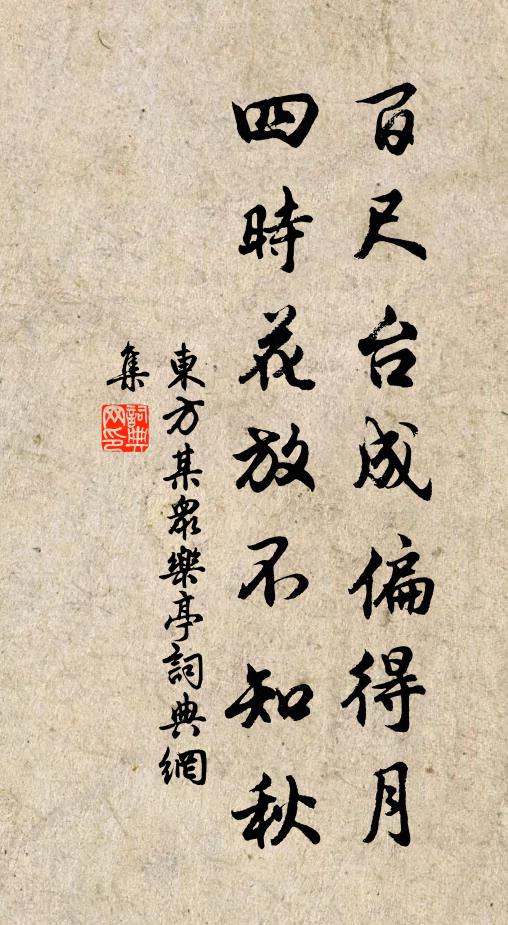 百尺台成偏得月
四時花放不知秋
東方某眾樂亭詞典網
集
詞典
网印